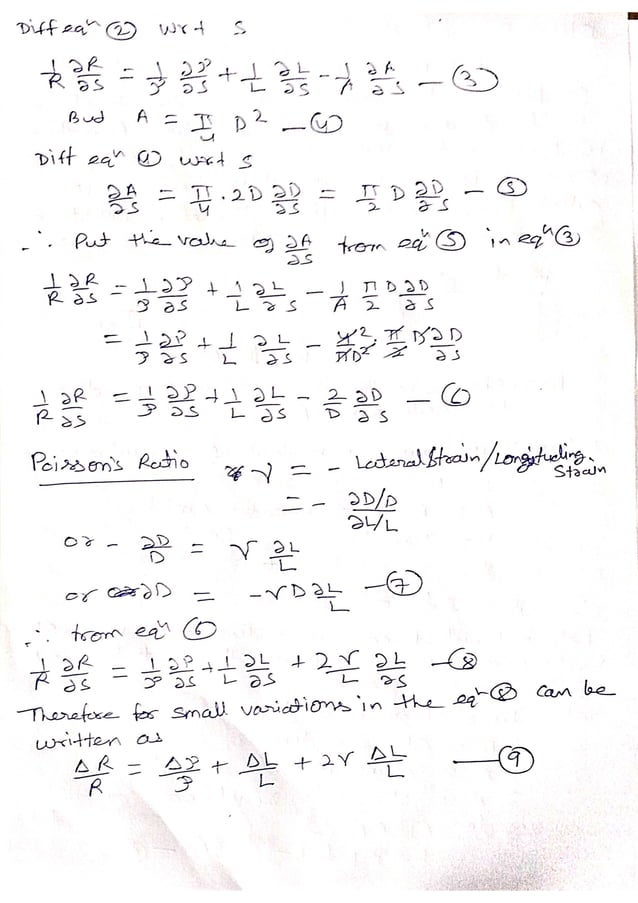 Diff eqⁿ ② wrt S
1/R ∂R/∂S = 1/ρ ∂ρ/∂S + 1/L ∂L/∂S - 1/A ∂A/∂S — ③
But A = π/4 D² — ④
Diff eqⁿ ④ wrt S
∂A/∂S = π/4 . 2D ∂D/∂S = π/2 D ∂D/∂S — ⑤
∴ Put the value of ∂A/∂S from eqⁿ ⑤ in eqⁿ ③
1/R ∂R/∂S = 1/ρ ∂ρ/∂S + 1/L ∂L/∂S - 1/A π/2 D ∂D/∂S
= 1/ρ ∂ρ/∂S + 1/L ∂L/∂S - 4 2/πD² . π/2 D ∂D/∂S
1/R ∂R/∂S = 1/ρ ∂ρ/∂S + 1/L ∂L/∂S - 2/D ∂D/∂S — ⑥
Poisson's Ratio ν = - Lateral Strain/Longituding. Strain
= - ∂D/D / ∂L/L
or - ∂D/D = ν ∂L/L
or ∂D = -νD ∂L/L — ⑦
∴ from eqⁿ ⑥
1/R ∂R/∂S = 1/ρ ∂ρ/∂S + 1/L ∂L/∂S + 2ν/L ∂L/∂S — ⑧
Therefore for small variations in the eqⁿ ⑧ can be
written as
ΔR/R = Δρ/ρ + ΔL/L + 2ν ΔL/L — ⑨